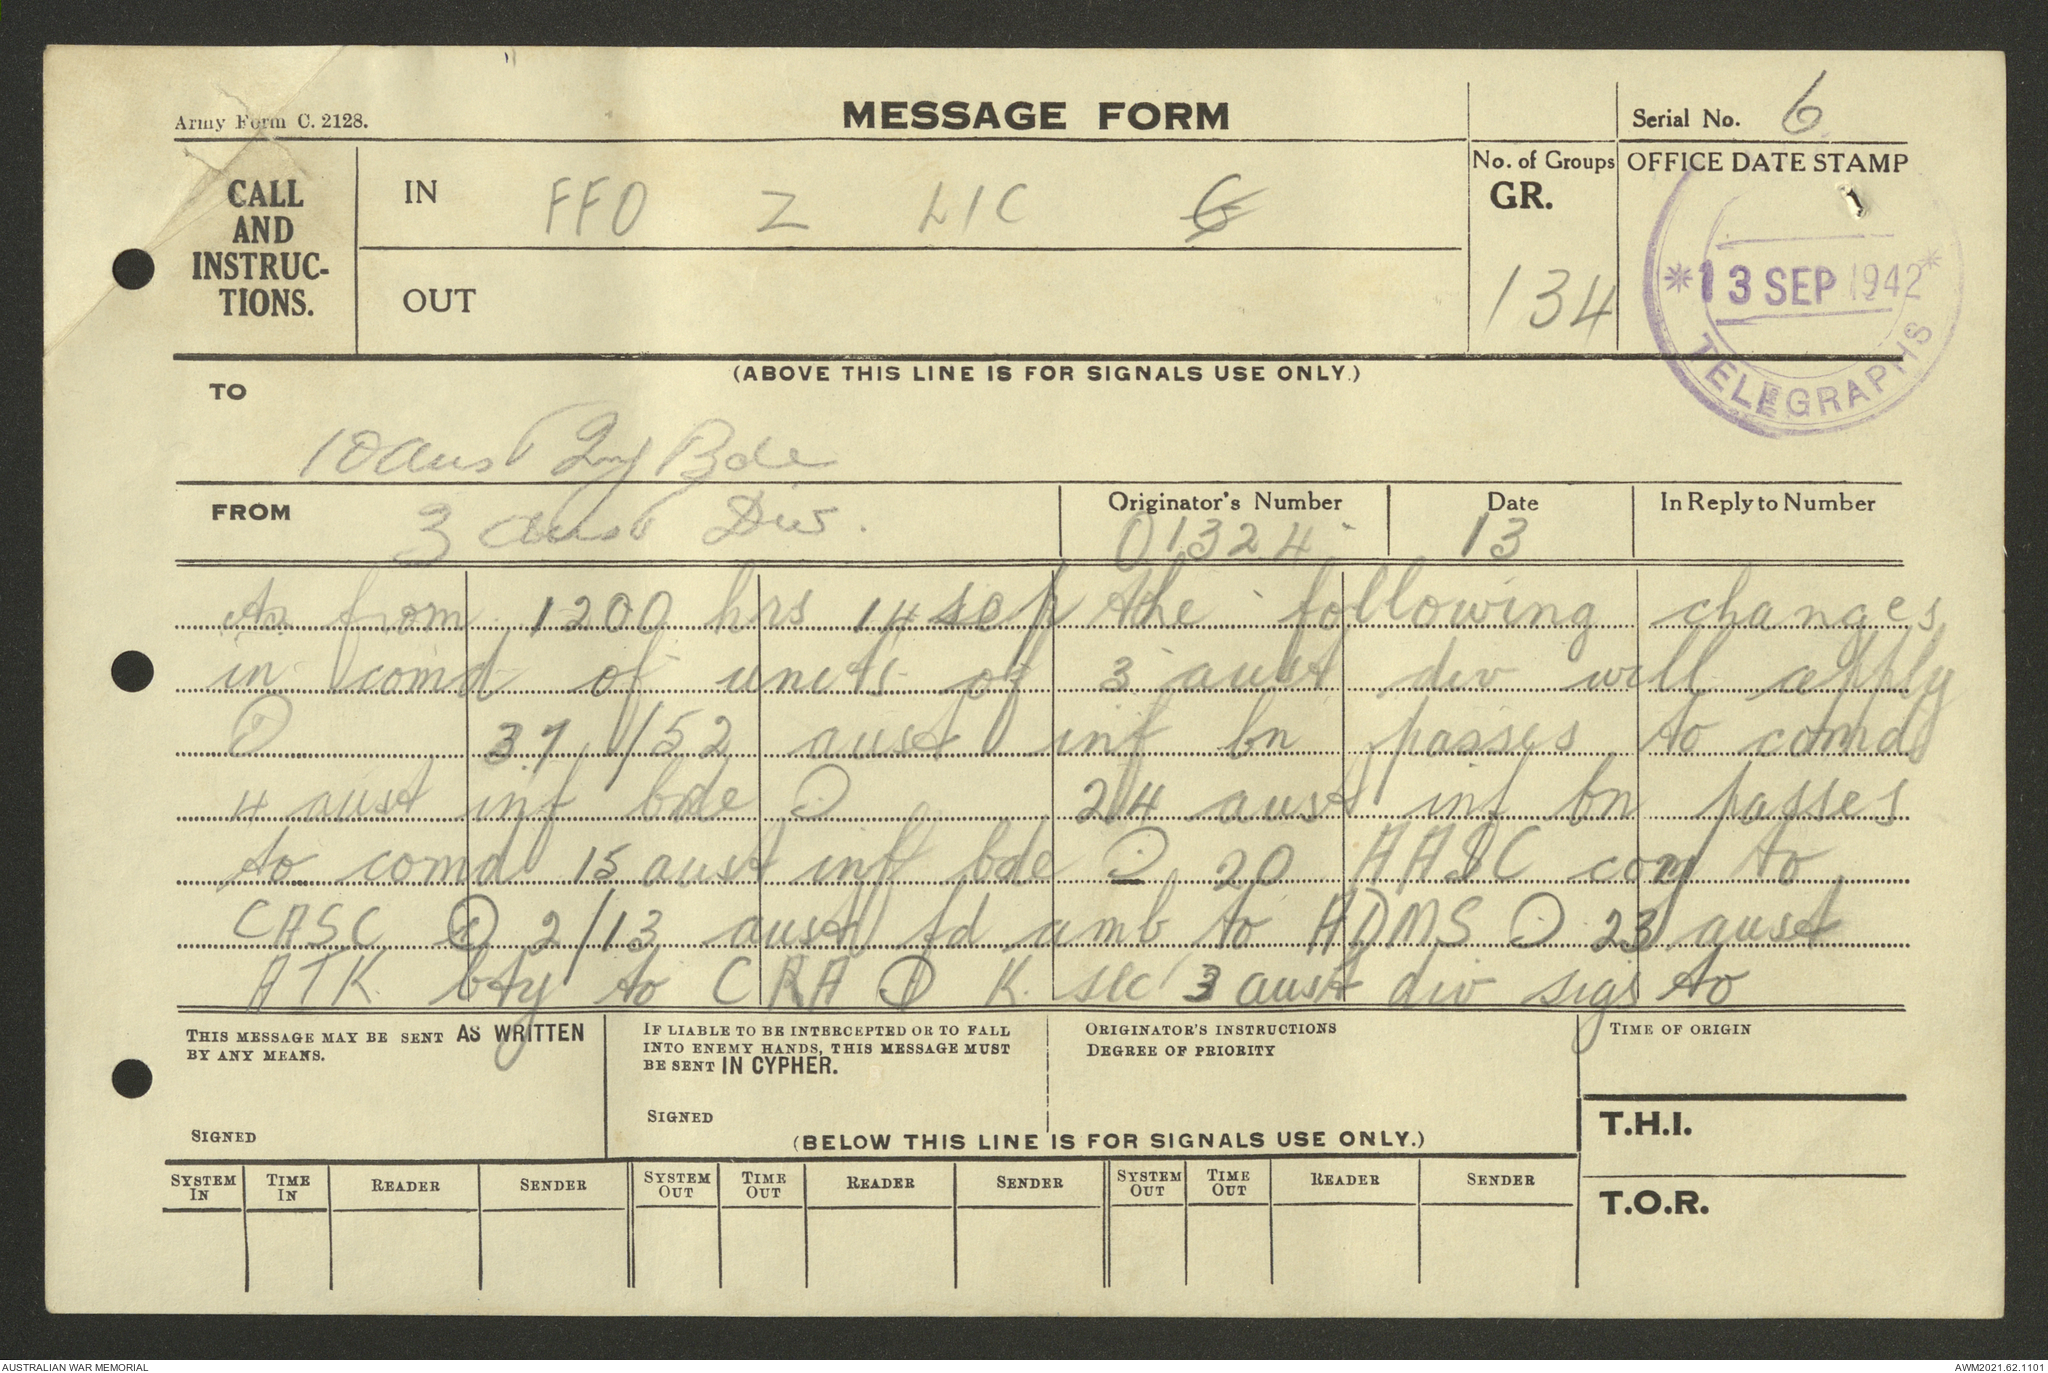 Army Form C. 2128.
MESSAGE FORM
Serial No. 6
CALL
AND
INSTRUC-
TIONS.
IN FFO Z LIC G
OUT
No. of Groups
GR.
134
OFFICE DATE STAMP
* 13 SEP 1942 *
TELEGRAPHS
(ABOVE THIS LINE IS FOR SIGNALS USE ONLY.)
TO
10 Aust Inf Bde
FROM 3 Aust Div.
Originator's Number
01324
Date
13
In Reply to Number
As from 1200 hrs 14 sep the following changes
in comd of units of 3 aust div will apply
⊙ 37/52 aust inf bn passes to comd
4 aust inf bde ⊙ 24 aust inf bn passes
to comd 15 aust inf bde ⊙ 20 AASC coy to
CASC ⊙ 2/13 aust fd amb to ADMS ⊙ 23 aust
ATK bty to CRA ⊙ K sec 3 aust div sigs to
THIS MESSAGE MAY BE SENT AS WRITTEN
BY ANY MEANS.
SIGNED
IF LIABLE TO BE INTERCEPTED OR TO FALL
INTO ENEMY HANDS, THIS MESSAGE MUST
BE SENT IN CYPHER.
SIGNED
ORIGINATOR'S INSTRUCTIONS
DEGREE OF PRIORITY
TIME OF ORIGIN
T.H.I.
T.O.R.
(BELOW THIS LINE IS FOR SIGNALS USE ONLY.)
SYSTEM IN TIME IN READER SENDER SYSTEM OUT TIME OUT READER SENDER SYSTEM OUT TIME OUT READER SENDER
AUSTRALIAN WAR MEMORIAL
AWM2021.62.1101